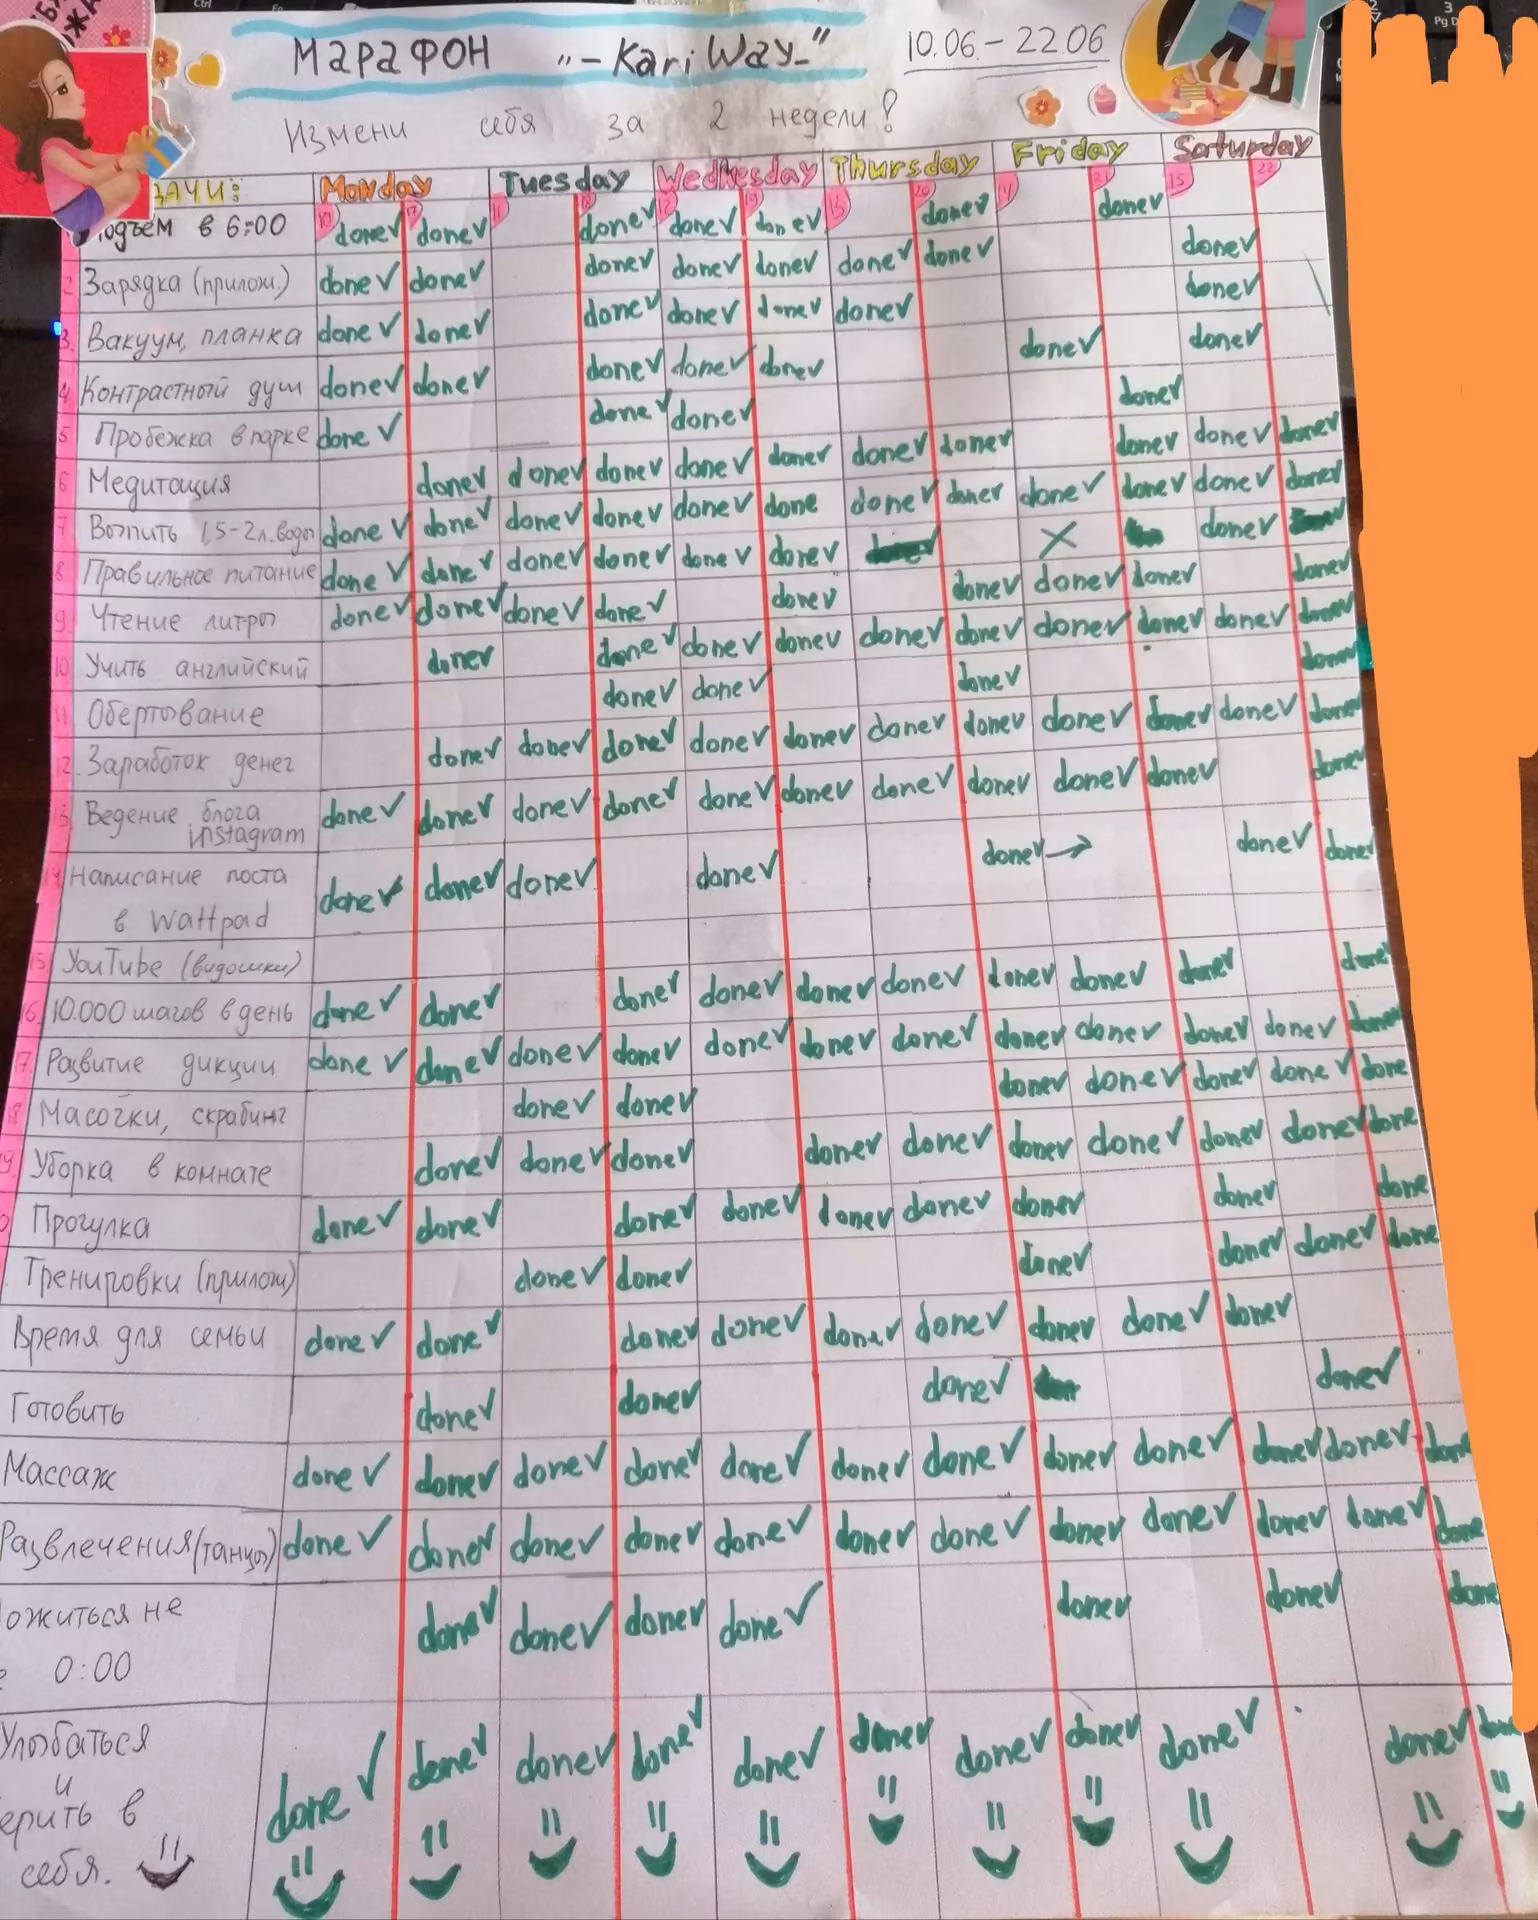 МАРАФОН "-Kari Way-" 10.06 - 22.06
Измени себя за 2 недели!
ДАЧИ: Monday Tuesday Wednesday Thursday Friday Saturday
10 17 11 18 12 19 13 20 14 21 15 22
подъём в 6:00 done✓ done✓ done✓ done✓ done✓ done✓ done✓
2 Зарядка (прилож.) done✓ done✓ done✓ done✓ done✓ done✓ done✓ done✓
3. Вакуум, планка done✓ done✓ done✓ done✓ done✓ done✓ done✓
4 Контрастный душ done✓ done✓ done✓ done✓ done✓ done✓ done✓
5 Пробежка в парке done ✓ done✓ done✓ done✓
6 Медитация done✓ done✓ done✓ done✓ done✓ done✓ done✓ done✓ done✓ done✓
7 Выпить 1,5-2л. воды done ✓ done✓ done✓ done✓ done✓ done done✓ done✓ done✓ done✓ done✓ done✓
8 Правильное питание done ✓ done✓ done✓ done✓ done✓ done✓ X done✓
9 Чтение литры done✓ done✓ done✓ done✓ done✓ done✓ done✓ done✓ done✓
10 Учить английский done✓ done✓ done✓ done✓ done✓ done✓ done✓ done✓ done✓ done✓
11 Обертывание done✓ done✓ done✓ done✓
12. Заработок денег done✓ done✓ done✓ done✓ done✓ done✓ done✓ done✓ done✓ done✓ done✓
3. Ведение блога done✓ done✓ done✓ done✓ done✓ done✓ done✓ done✓ done✓ done✓ done✓
instagram
14 Написание поста done✓ done✓ done✓ done✓ done✓→ done✓ done✓
в Wattpad
15 YouTube (видошки)
16. 10.000 шагов в день done ✓ done✓ done✓ done✓ done✓ done✓ done✓ done✓ done✓ done✓
17. Развитие дикции done ✓ done✓ done✓ done✓ done✓ done✓ done✓ done✓ done✓ done✓ done✓ done✓
18 Масочки, скрабинг done✓ done✓ done✓ done✓ done✓ done✓ done
9. Уборка в комнате done✓ done✓ done✓ done✓ done✓ done✓ done✓ done✓ done✓ done
Прогулка done✓ done✓ done✓ done✓ done✓ done✓ done✓ done✓ done
Тренировки (прилож) done✓ done✓ done✓ done✓ done✓ done
Время для семьи done ✓ done✓ done✓ done✓ done✓ done✓ done✓ done✓ done✓
Готовить done✓ done✓ done✓ done✓
Массаж done ✓ done✓ done✓ done✓ done✓ done✓ done✓ done✓ done✓ done✓ done✓ done
Развлечения (танцы) done ✓ done✓ done✓ done✓ done✓ done✓ done✓ done✓ done✓ done✓ done✓ done
ожиться не done✓ done✓ done✓ done ✓ done✓ done✓ done
0:00
Улыбаться done ✓ done✓ done✓ done✓ done✓ done✓ done✓ done✓ done✓ done✓
и
ерить в
себя.